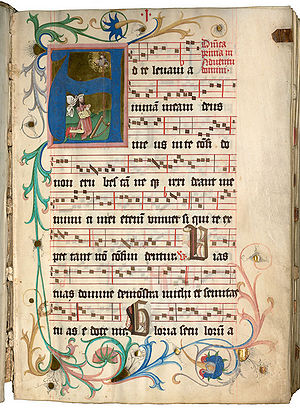 Dnica
prima in
aduentu
domini
d te leuaui a
nimam meam deus
me us in te confi do
non eru bescam ne qz irri deant me
inimi ci mei etenim vniuer si qui te ex
pec tant non confun dentur Vias
tuas domine demonstra michi et semitas
tu as e doce me Gloria seculorum a